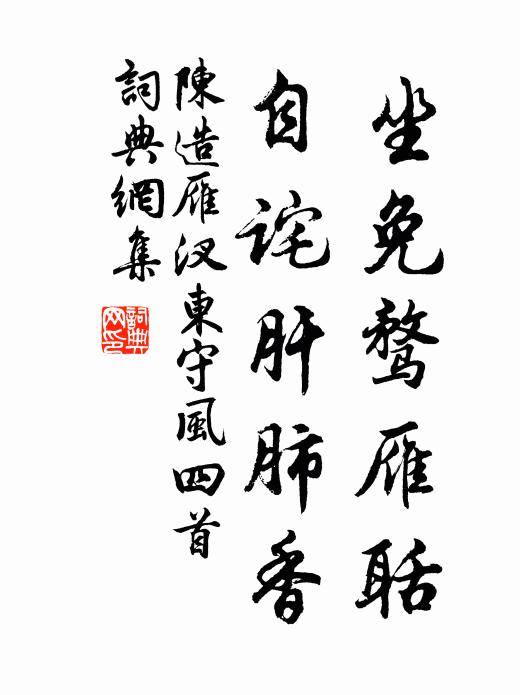 坐免鹜雁聒
自詫肝肺香
陳造雁汊東守風四首
詞典網集
詞典网印